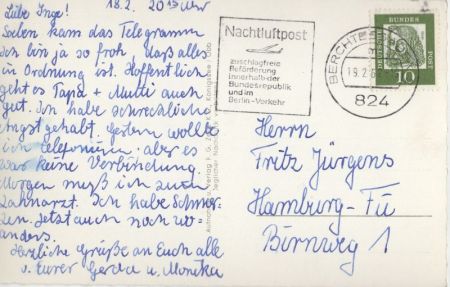 18.2. 20 15 Uhr
Liebe Inge!
Soeben kam das Telegramm
Ich bin ja so froh, daß alles
in Ordnung ist. Hoffentlich
geht es Papa + Mutti auch
gut. Ich habe schreckliche
Angst gehabt. Gestern wollte
ich telefonieren, aber es
war keine Verbindung.
Morgen muß ich zum
Zahnarzt. Ich habe Schmer-
zen. Jetzt auch noch wo-
anders.
Herzliche Grüße an Euch alle
v. Eurer Gerda u. Monika
Nachtluftpost
zuschlagfreie
Beförderung
innerhalb der
Bundesrepublik
und im
Berlin-Verkehr
BERCHTES
19.2.6
824
DEUTSCHE BUNDESPOST
10
Herrn
Fritz Jürgens
Hamburg-Fu
Birnweg 1